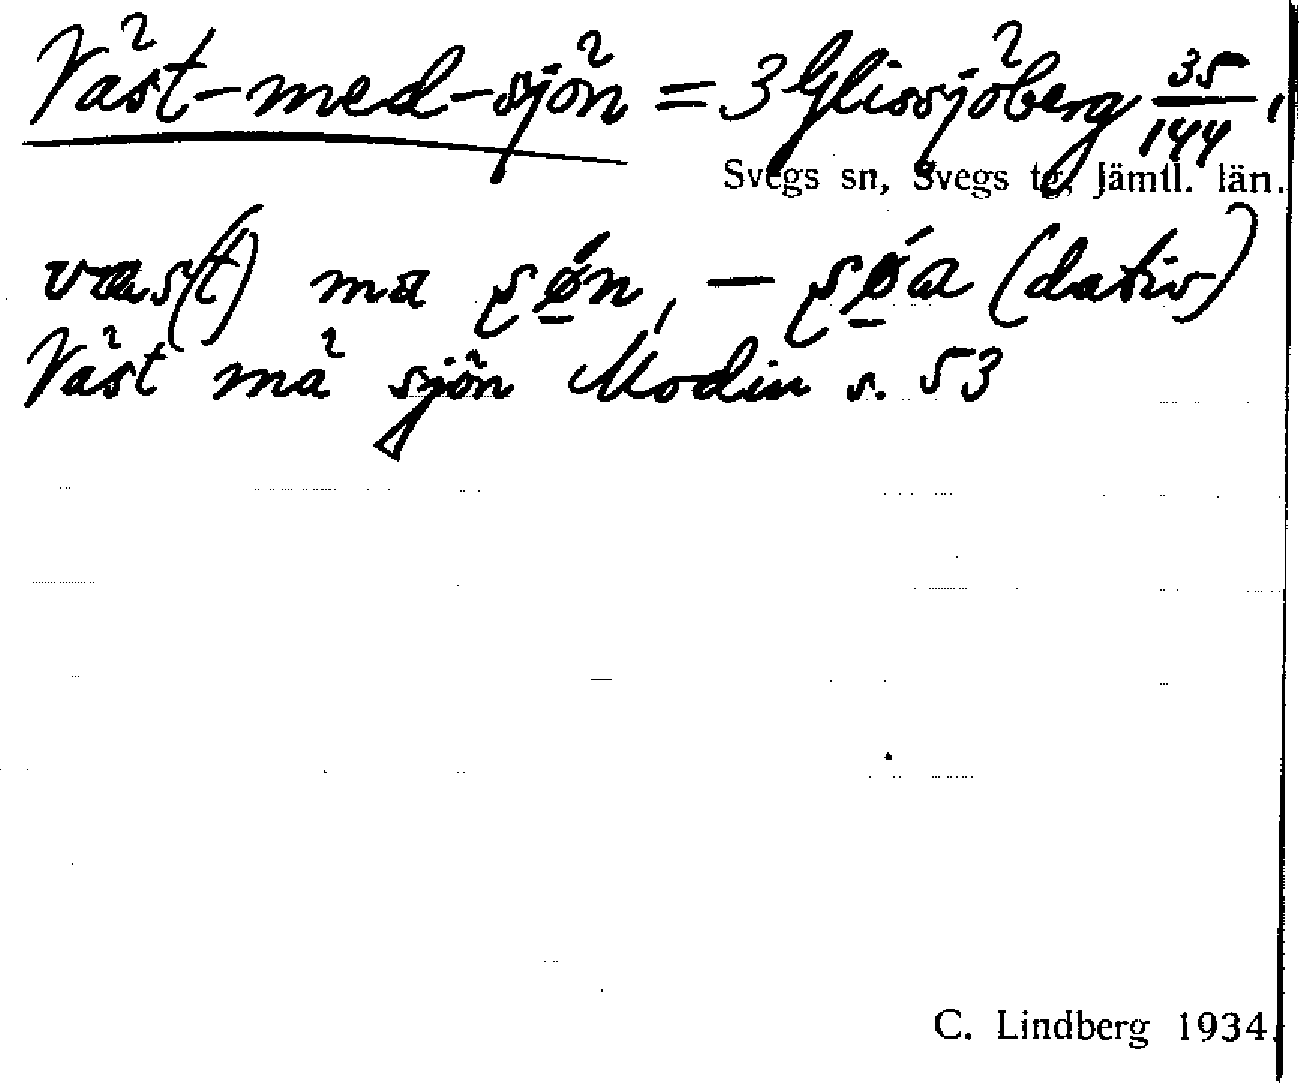 Väst-med-sjön = 3 Glissjöberg 35/144,
Svegs sn, Svegs tg, Jämtl. län.
væs(t) mæ ʂøn, – ʂøa (dativ)
Väst mä sjön Modin s. 53
C. Lindberg 1934.